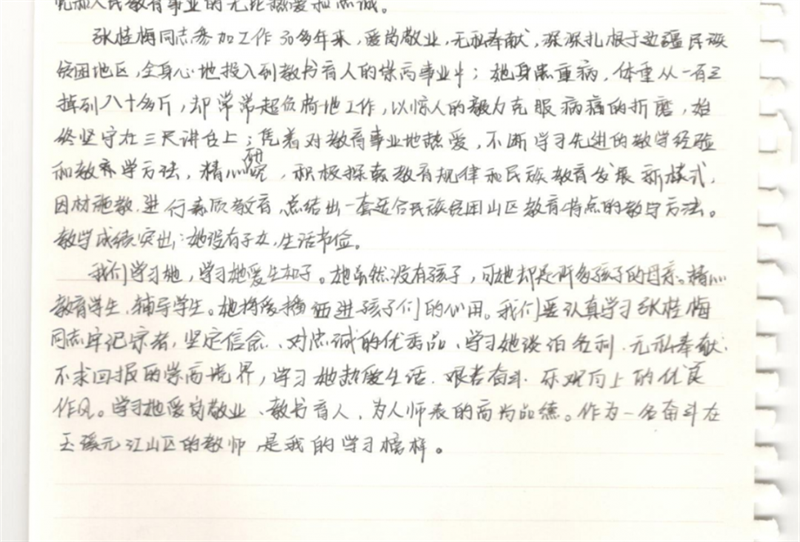 党和人民教育事业的无比热爱和忠诚。
张桂梅同志参加工作30多年来，爱岗敬业，无私奉献，深深扎根于边疆民族
贫困地区，全身心地投入到教书育人的崇高事业中；她身患重病，体重从一百三
掉到八十多斤，却常常超负荷地工作，以惊人的毅力克服病痛的折磨，始
终坚守在三尺讲台上；凭着对教育事业地热爱，不断学习先进的教学经验
和教育学方法，精心研究，积极探索教育规律和民族教育发展新模式，
因材施教.进行素质教育.总结出一套适合民族贫困山区教育特点的教学方法。
教学成绩突出；她没有子女，生活节俭。
我们学习她，学习她爱生如子。她虽然没有孩子，可她却是所有孩子的母亲.精心
教育学生、辅导学生。她将爱播洒进孩子们的心田。我们要认真学习张桂梅
同志牢记宗旨，坚定信念、对忠诚的优秀品、学习她淡泊名利.无私奉献.
不求回报的崇高境界，学习她热爱生活.艰苦奋斗.乐观向上的优良
作风。学习她爱岗敬业、教书育人、为人师表的高尚品德。作为一名奋斗在
玉溪元江山区的教师，是我的学习榜样。